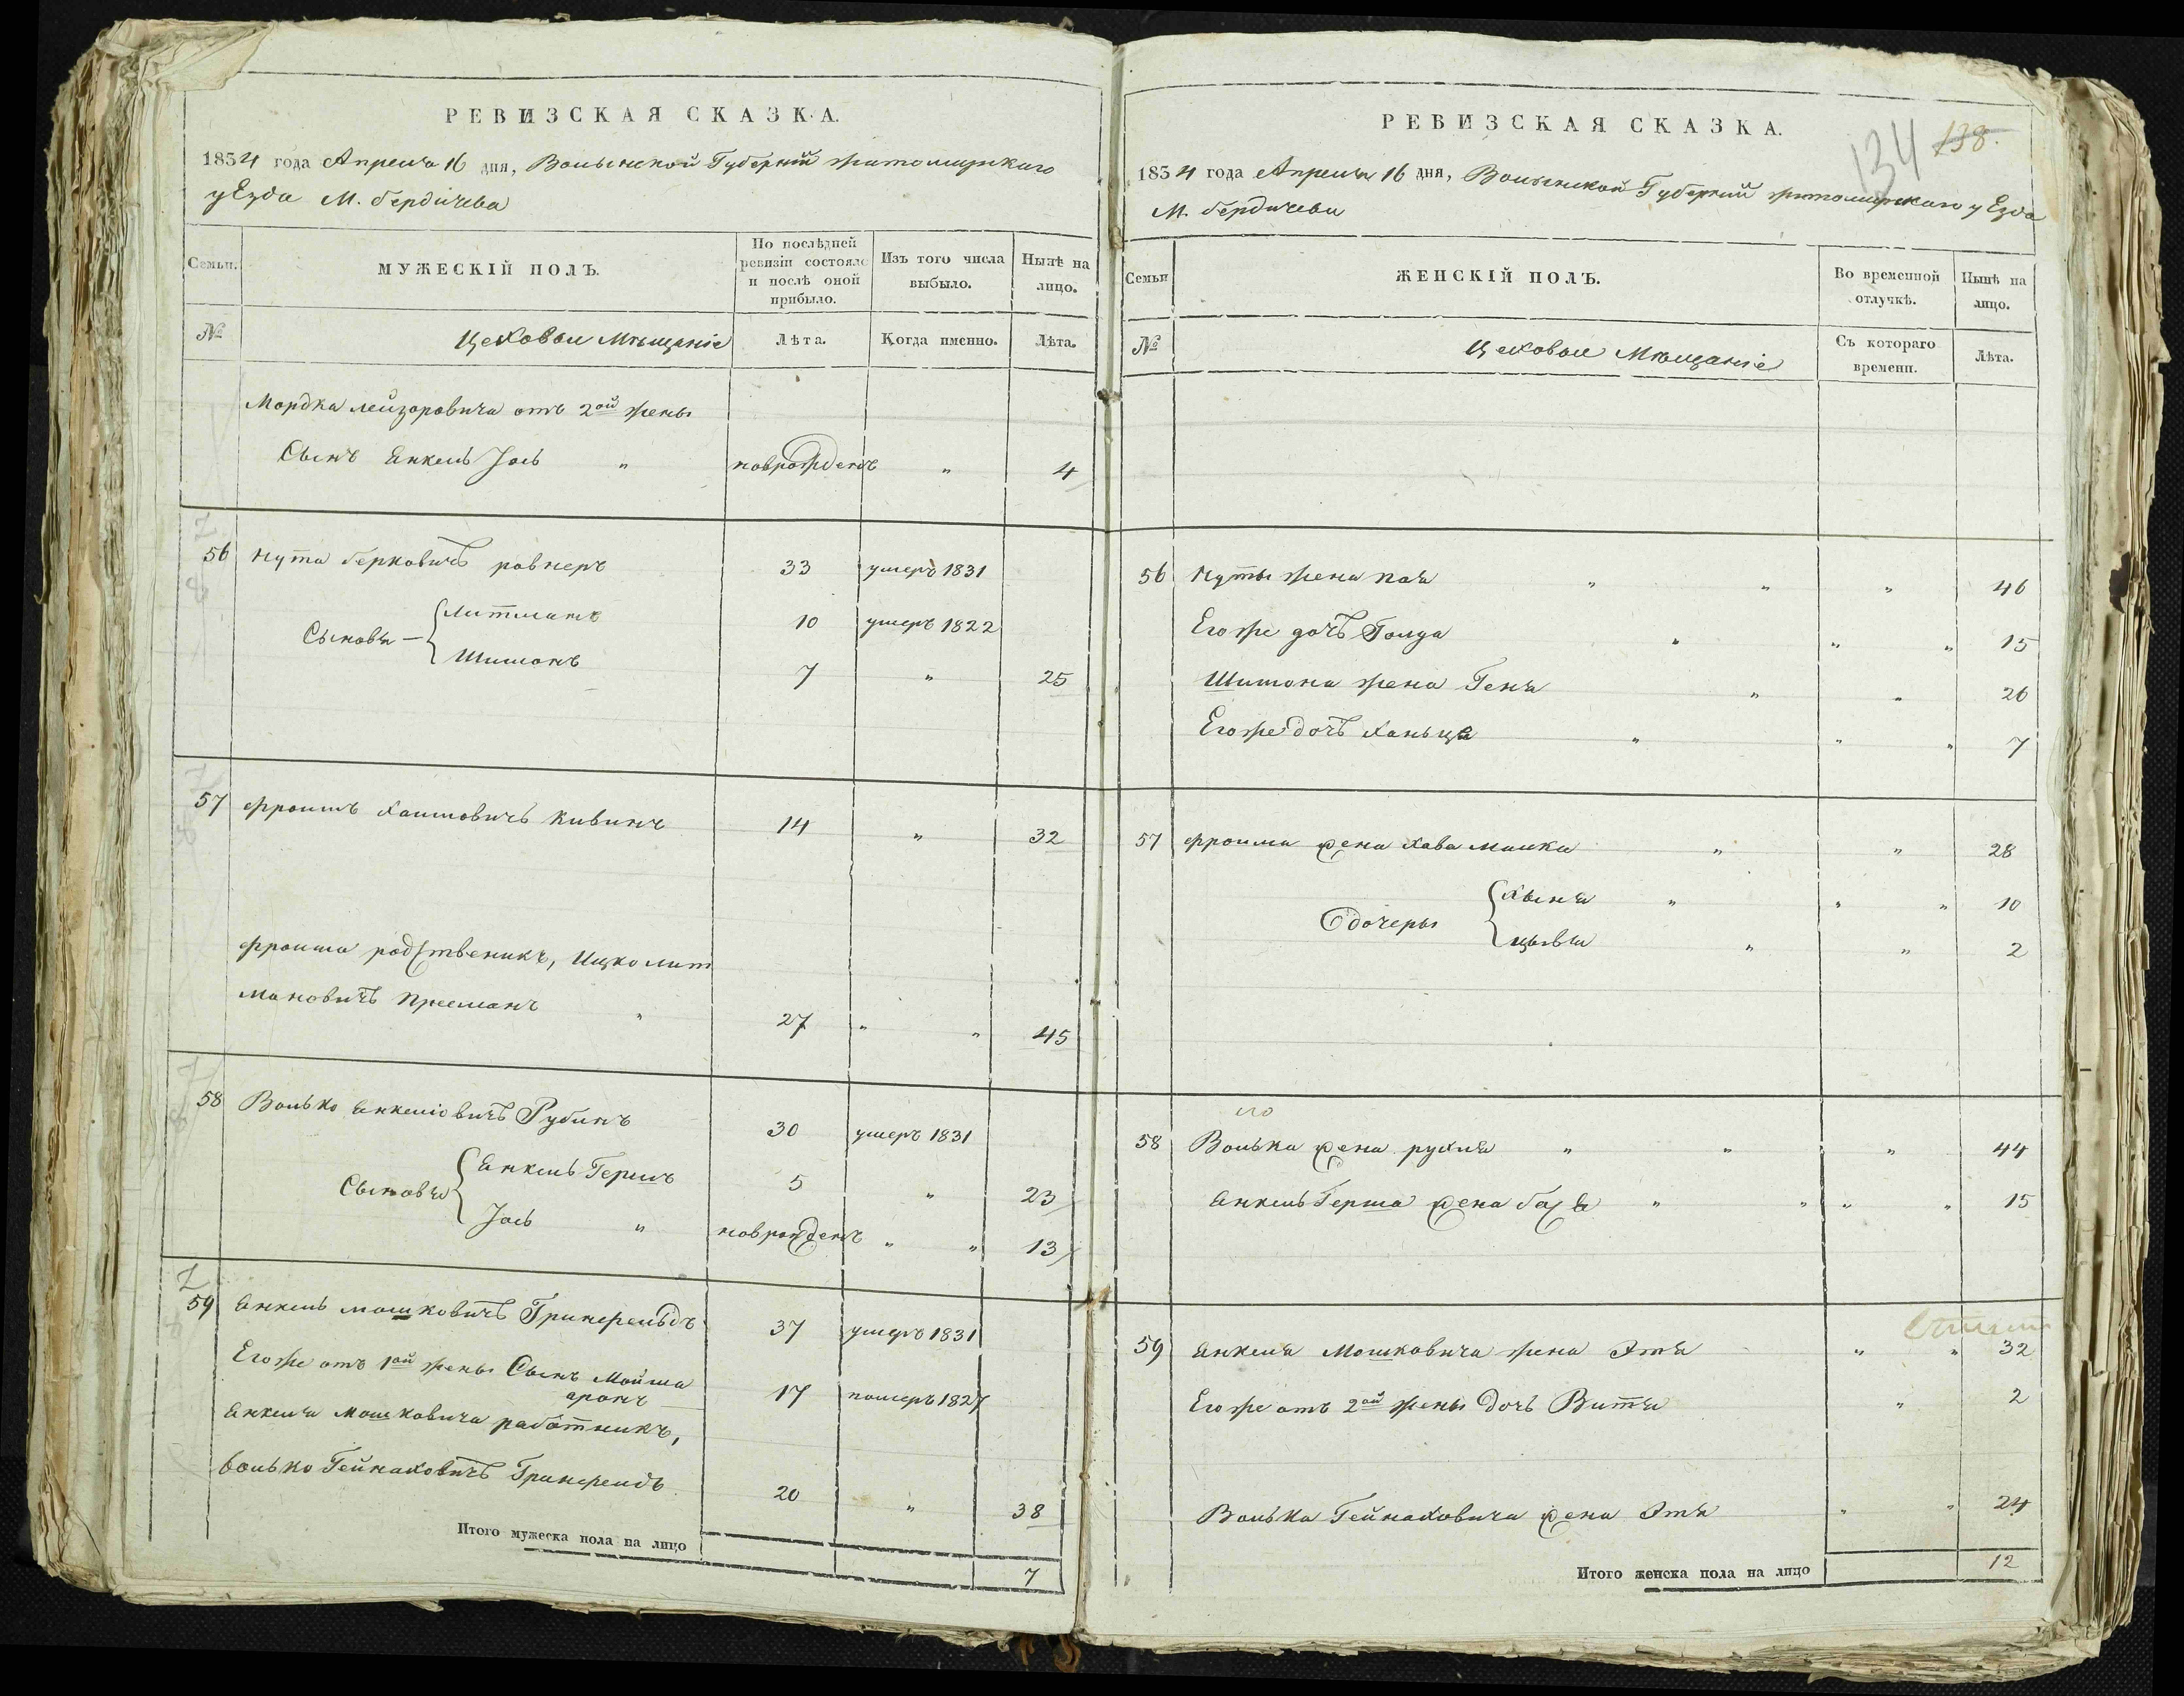 РЕВИЗСКАЯ СКАЗКА.
1834 года Апреля 16 дня, Волынской Губерній житомирскаго
уЕзда М. бердичева
Семьи.
МУЖЕСКІЙ ПОЛЪ.
По послѣдней
ревизіи состояло
и послѣ оной
прибыло.
Изъ того числа
выбыло.
Нынѣ на
лицо.
№
Цеховыи Мѣщаніе
Лѣта.
Когда именно.
Лѣта.
Мордка лейзоровича отъ 2ой жены
Сынъ Янкель Іось " новрожденъ " 4
56 Нута берковичъ ровнеръ 33 умеръ 1831
Сыновья — Литманъ 10 умеръ 1822
Шимонъ 7 " 25
57 Фроимъ Хаимовичъ Кивинъ 14 " 32
Фроима родственикъ, Ицко лит
мановичъ Прееманъ " 27 " " 45
58 Волько Янкеліовичъ Рубинъ 30 умеръ 1831
Сыновья Янкель Гершъ 5 " 23
Іось " новрожденъ " " 13
59 Янкель мошковичъ Гринфельдъ 37 умеръ 1831
Егоже отъ 1ой жены Сынъ Мойша
аронъ 17 померъ 1827
Янкеля Мошковича работникъ,
волько Гейнаховичъ Гринфелдъ 20 " 38
Итого мужеска пола на лицо 7
134 138.
РЕВИЗСКАЯ СКАЗКА.
1834 года Апреля 16 дня, Волынской Губерній житомирскаго уЕзда
М. бердичева
Семьи
ЖЕНСКІЙ ПОЛЪ.
Во временной
отлучкѣ.
Нынѣ на
лицо.
№
Цеховыи Мѣщаніе
Съ котораго
времени.
Лѣта.
56 Нуты жена пая " " " 46
Егоже дочъ Голда " " " 15
Шимона жена Геня " " 26
Егоже дочъ Ханьця " " " 7
57 Фроима жена Хава малка " " 28
дочеры Хыня " " " 10
цывья " " 2
58 Волька жена рухля " " " 44
Янкель Герша жена бася " " " " 15
59 Янкеля Мошковича жена Этя " " 32
Егоже отъ 2ой жены дочъ Витя " 2
Волька Гейнаховича жена Этя " " 24
Итого женска пола на лицо 12